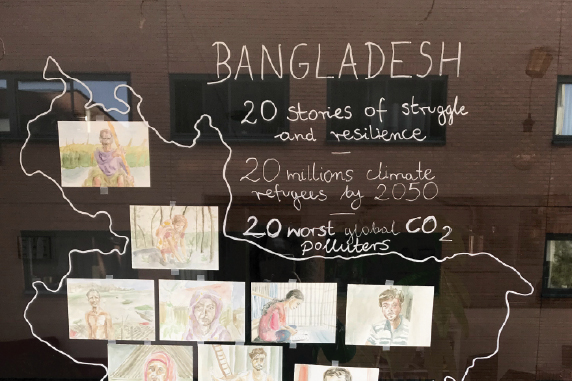 BANGLADESH
20 stories of struggle
and resilience
20 millions climate
refugees by 2050
20 worst global CO2
polluters